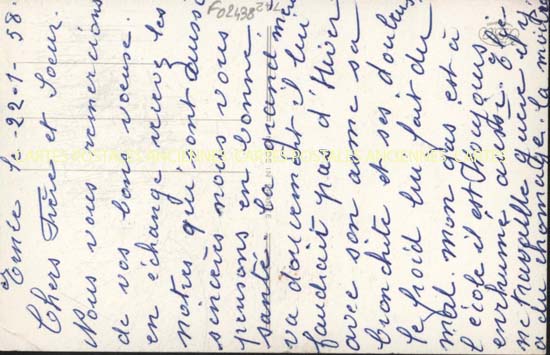 F02438
Tence le 22-1-58.
Chers Frère et Soeur.
Nous vous remercions
de vos bon voeuse.
en échange recevez les
notres qui sont aussi
sincères nous vous
pensons en bonne
santé. La grand mère
va doucement il lui
faudrait pas d'Hiver
avec son asme sa
bronchite et ses douleurs
le froid lui fait du
mal. mon gas est à
l'école il est toujours
enrhumé aussi.
ne travaille guère il y
a du chomage. la moitié
CARTES-POSTALES-ANCIENNES